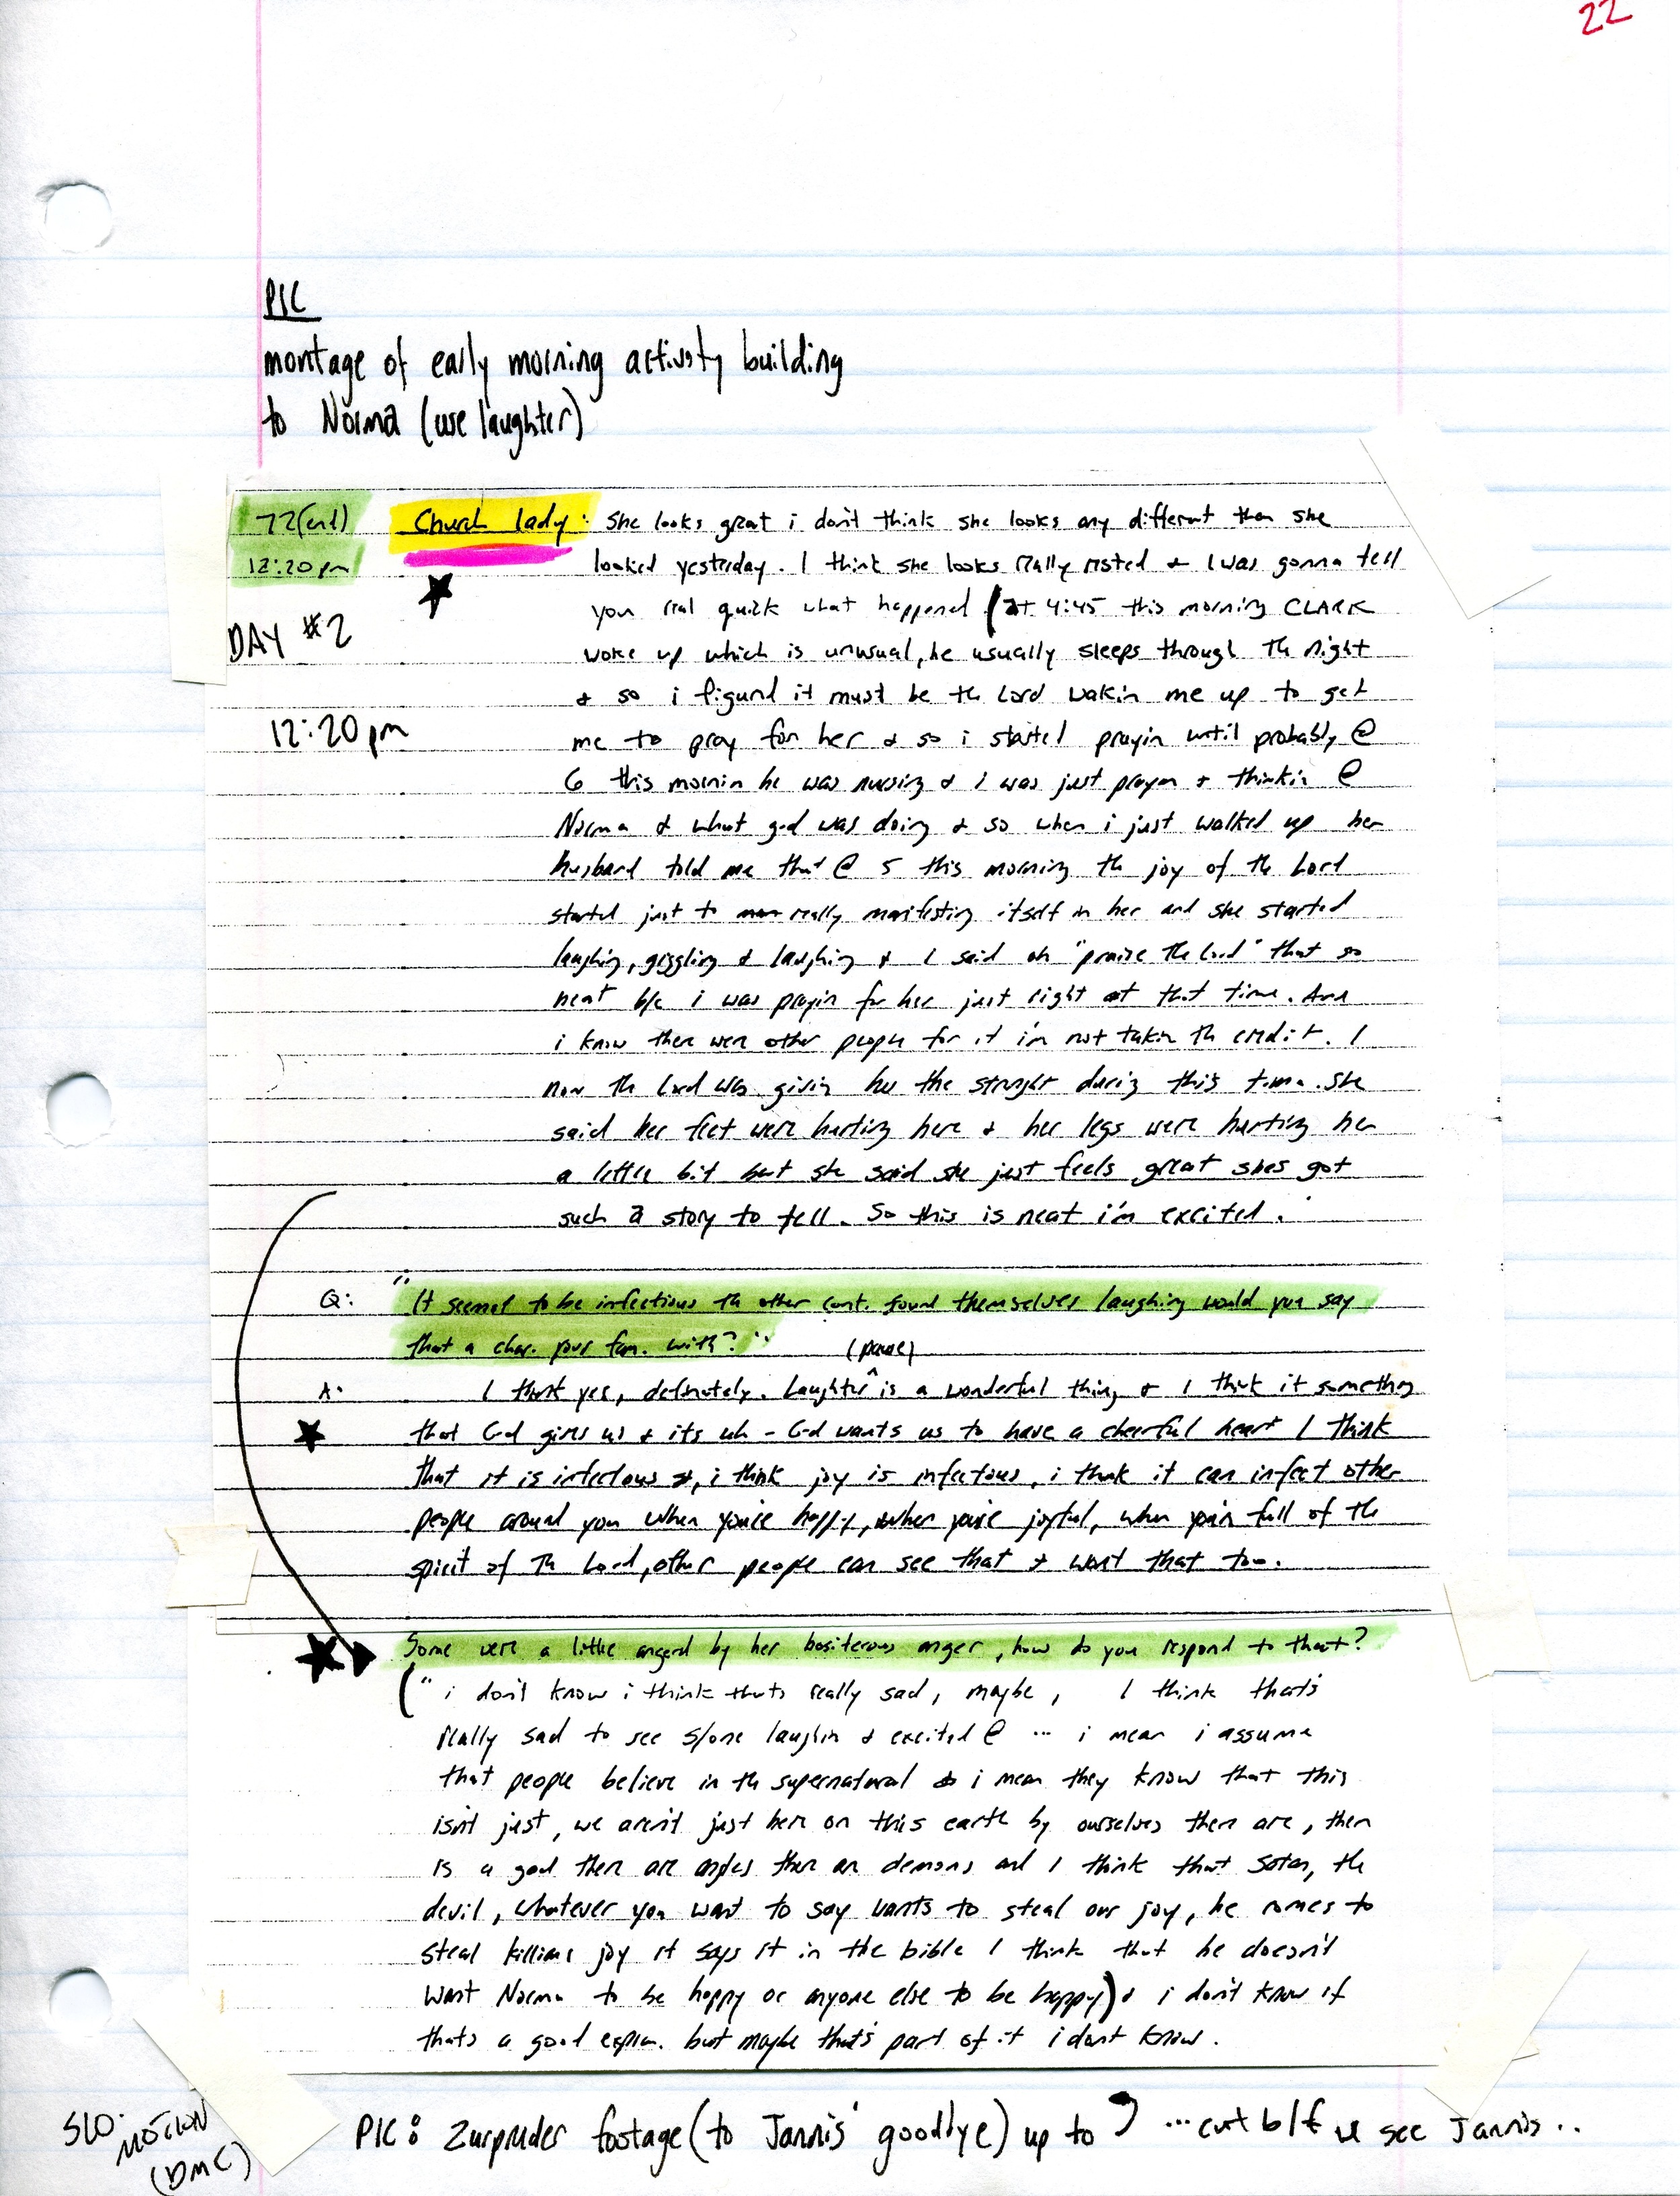 22
PIC
montage of early morning activity building
to Norma (use laughter)
72(end) Church lady: She looks great i don't think she looks any different than she
12:20pm looked yesterday. I think she looks really rested + I was gonna tell
you real quick what happened (at 4:45 this morning CLARK
DAY #2 woke up which is unusual, he usually sleeps through th night
+ so i figurd it must be th Lord wakin me up to get
12:20pm me to pray for her + so i started prayin until probably @
6 this mornin he was nursing + i was just prayen + thinkin @
Norma + what god was doing + so when i just walked up her
husband told me that @ 5 this morning th joy of th Lord
started just to really manifesting itself in her and she started
laughing, giggling + laughing + I said oh "praise the lord" that so
neat b/c i was prayin for her just right at that time. And
i know ther wer other people for it i'm not takin th credit. I
now th Lord was givin her the strenght during this time. She
said her feet were hurting here + her legs were hurting her
a little bit but she said she just feels great shes got
such a story to tell. So this is neat i'm excited.
Q: "It seemed to be infectious th other cont. found themselves laughing would you say
that a char. your fam. with?" (pause)
A: I think yes, definately. Laughter ^ is a wonderful thing + I think it something
that God gives us + its uh - God wants us to have a cheerful heart I think
that it is infectious, i think joy is infectious, i think it can infect other
people around you when you're happy, when you're joyful, when your full of the
spirit of th Lord, other people can see that + want that too.
Some were a little angerd by her boisterous anger, how do you respond to that?
("i don't know i think thats really sad, maybe, I think that's
really sad to see s/one laughin + excited @ ... i mean i assume
that people believe in th supernatural i mean they know that this
isn't just, we aren't just here on this earth by ourselves ther are, ther
is a god ther are angles ther are demons and I think that Satan, the
devil, whatever you want to say wants to steal our joy, he comes to
steal killims joy it says it in the bible I think that he doesn't
want Norma to be happy or anyone else to be happy) + i don't know if
thats a good explan. but maybe that's part of it i dont know.
SLO-
MOTION
(DMC)
PIC: Zurpruder footage (to Jannis' goodbye) up to ... cut b/f u see Jannis..